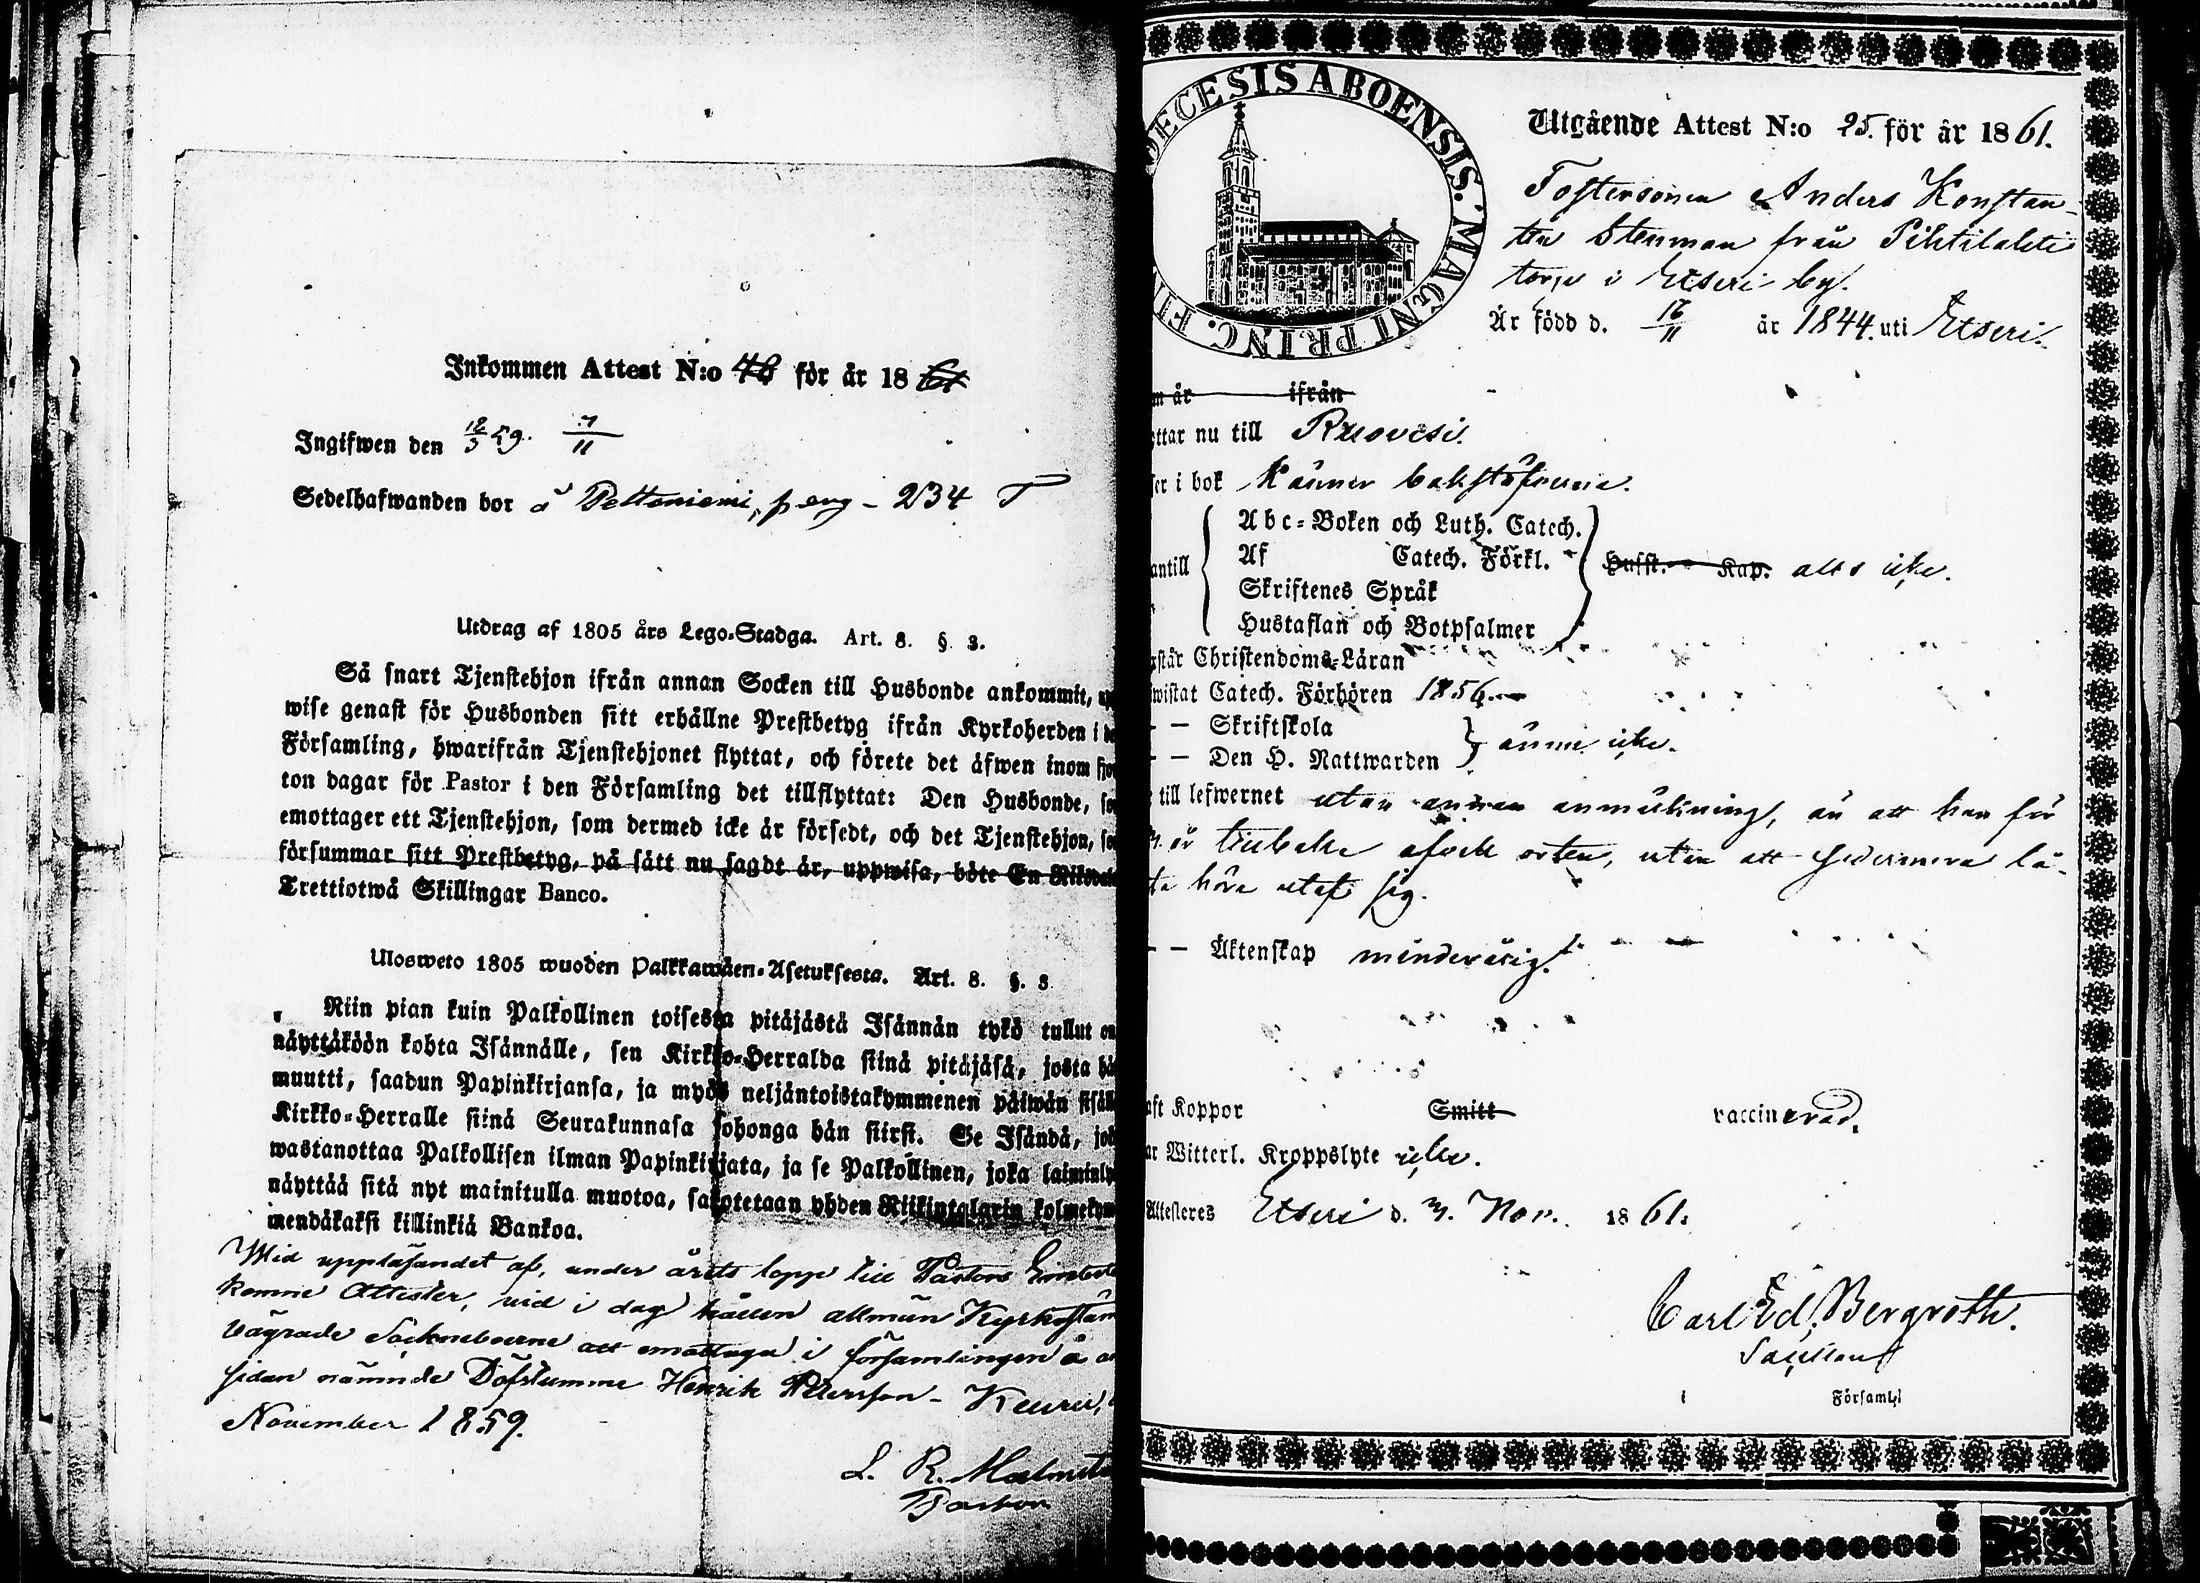 Inkommen Attest N:o 48 för år 18 61
Ingifwen den 12/3 59. 7/11
Sedelhafwanden bor å Peltoniemi, pag - 234 T
Utdrag af 1805 års Lego-Stadga. Art. 8. § 3.
Så snart Tjenstehjon ifrån annan Socken till Husbonde ankommit,
wise genast för Husbonden sitt erhållne Prestbetyg ifrån Kyrkoherden i
Församling, hwarifrån Tjenstehjonet flyttat, och förete det äfwen inom
ton dagar för Pastor i den Församling det tillflyttat: Den Husbonde,
emottager ett Tjenstehjon, som dermed icke är försedt, och det Tjenstehjon,
försummar sitt Prestbetyg, på sätt nu sagdt är, uppwisa, böte En
Trettiotwå Skillingar Banco.
Ulosweto 1805 wuoden Palkkawäen-Asetuksesta. Art. 8. §. 3
Niin pian kuin Palkollinen toisesta pitäjästä Isännän tykö tullut on
näyttäköön kohta Isännälle, sen Kirkko-Herralda siinä pitäjäsä, josta
muutti, saadun Papinkirjansa, ja myös neljäntoistakymmenen päiwän
Kirkko-Herralle siinä Seurakunnasa johonga hän siirsi. Se Isändä,
wastanottaa Palkollisen ilman Papinkirjata, ja se Palkollinen, joka
näyttää sitä nyt mainitulla muotoa, sakotetaan yhden Riikintalarin
mendäkaksi killinkiä Bankoa.
Wid uppläsandet af, under årets lopp till Pastors
komne Attester, vid i dag hållen allmän
vägrade Sockneboerne att emottaga i församlingen å
sidan nämnde Döfstumme Henrik Pettersson - Keuru,
November 1859.
L. R.
Pastor
DECESIS ABOENSIS. MAGNI PRINC. FI
Utgående Attest N:o 25. för år 1861.
Fostersonen Anders Konstan-
tin Stenman från Pihtilahti
torp i Etseri by.
Är född d. 16/11 år 1844. uti Etseri.
m år ifrån
ttar nu till Ruovesi.
er i bok känner bokstäfverna.
antill Abc-Boken och Luth. Catech.
Af Catech. Förkl. Husst. Kap. alls icke.
Skriftenes Språk
Hustaflan och Botpsalmer
står Christendoms-Läran
wistat Catech. Förhören 1856.
- - Skriftskola
- - Den H. Nattwarden ännu icke.
till lefwernet utan annan anmärkning, än att han för
år tillbaka afvek orten, utan att sedermera lå-
ta höra utaf sig.
- - Äktenskap minderårig.
aft Koppor Smitt vaccinerad.
ar Witterl. Kroppslyte icke.
Attesteres Etseri d. 3. Nov. 1861.
Carl Ed. Bergroth.
Sacellan
i Församl.